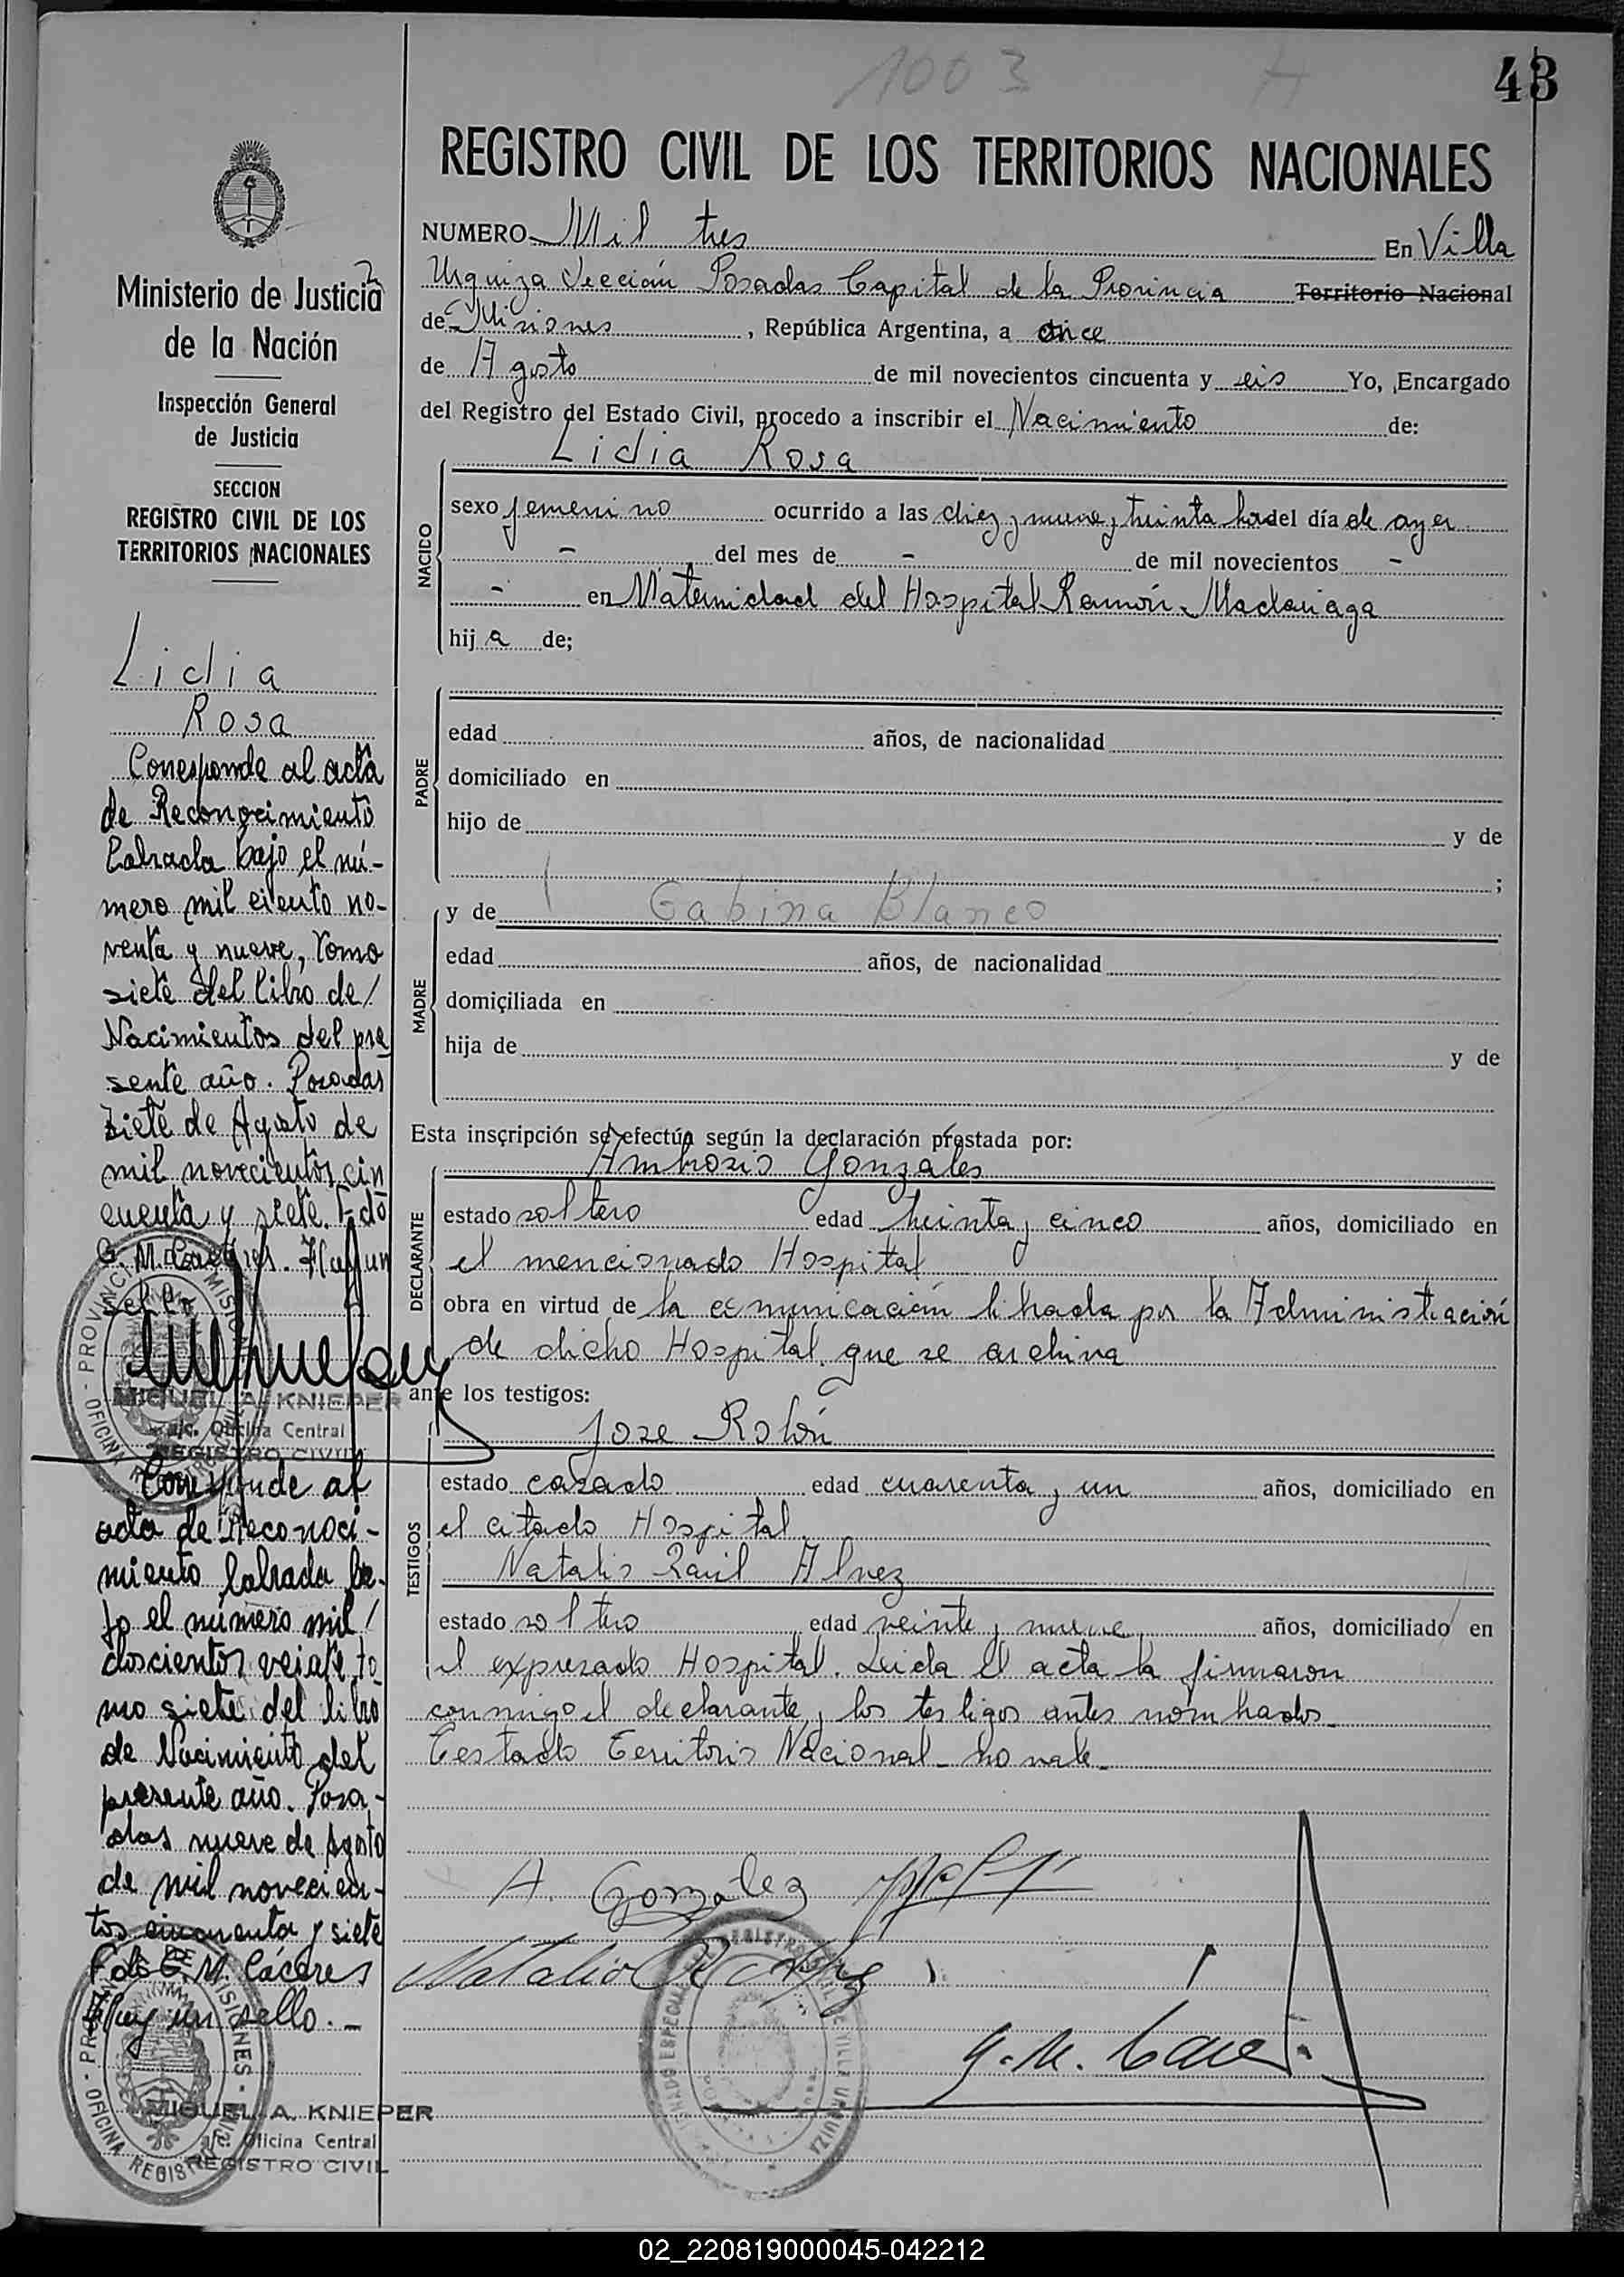 1003 H
43
REGISTRO CIVIL DE LOS TERRITORIOS NACIONALES
NUMERO Mil tres En Villa
Urquiza Sección Posadas Capital de la Provincia Territorio Nacional
de Misiones, República Argentina, a once
de Agosto de mil novecientos cincuenta y seis Yo, Encargado
del Registro del Estado Civil, procedo a inscribir el Nacimiento de:
Lidia Rosa
NACIDO
sexo femenino ocurrido a las diez y nueve y treinta hs del día de ayer
- del mes de - de mil novecientos -
- en Maternidad del Hospital Ramón Madariaga
hija de;
PADRE
edad años, de nacionalidad
domiciliado en
hijo de y de
;
MADRE
y de Gabina Blanco
edad años, de nacionalidad
domiciliada en
hija de y de
Esta inscripción se efectúa según la declaración prestada por:
DECLARANTE
Ambrosio Gonzales
estado soltero edad treinta y cinco años, domiciliado en
el mencionado Hospital
obra en virtud de la comunicación librada por la Administración
de dicho Hospital, que se archiva
ante los testigos:
TESTIGOS
Jose Rolón
estado casado edad cuarenta y un años, domiciliado en
el citado Hospital
Natalio Raúl Alvez
estado soltero edad veinte y nueve años, domiciliado en
el expresado Hospital. Leida el acta la firmaron
conmigo el declarante y los testigos antes nombrados
Testado Territorio Nacional - no vale -
A. Gonzalez
Natalio R. Alvez
G. M. Caceres
Ministerio de Justicia
de la Nación
Inspección General
de Justicia
SECCION
REGISTRO CIVIL DE LOS
TERRITORIOS NACIONALES
Lidia
Rosa
Corresponde al acta
de Reconocimiento
labrada bajo el nú-
mero mil ciento no-
venta y nueve, Tomo
siete del libro de/
Nacimientos del pre
sente año. Posadas
siete de Agosto de
mil novecientos cin
cuenta y siete. Fdo
G. M. Caceres. Hay un
sello
MIGUEL A. KNIEPER
a/c. Oficina Central
REGISTRO CIVIL
Corresponde al
acta de Reconoci-
miento labrada ba-
jo el número mil/
doscientos veinte, to
mo siete del libro
de Nacimiento del
presente año. Posa-
das nueve de Agosto
de mil novecien-
tos cincuenta y siete
Fdo G. M. Cáceres
Hay un sello. -
MIGUEL A. KNIEPER
a/c. Oficina Central
REGISTRO CIVIL
02_220819000045-042212